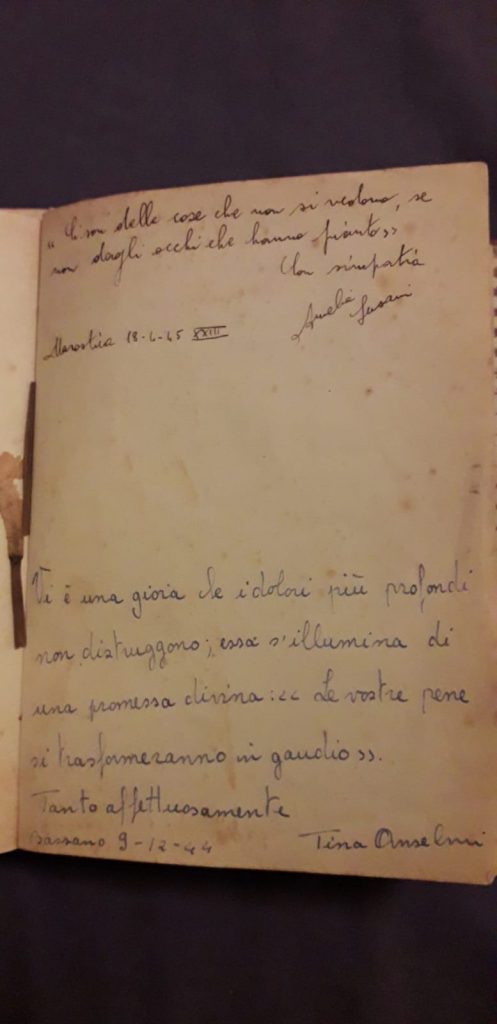 "Ci son delle cose che non si vedono, se
non dagli occhi che hanno pianto"
Con simpatia
Amelia
Marostica 18-4-45 XXIII
Vi è una gioia che i dolori più profondi
non distruggono; essa s'illumina di
una promessa divina: << Le vostre pene
si trasformeranno in gaudio >>.
Tanto affettuosamente
Bassano 9-12-44 Tina Anselmi